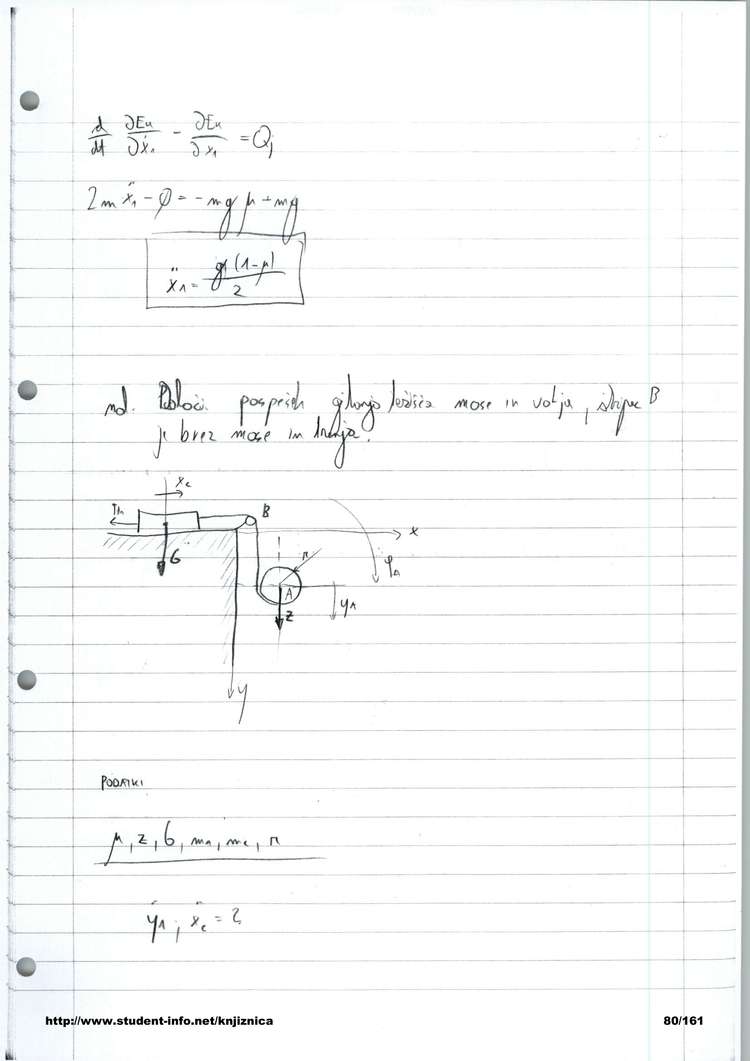 d/dt ∂Ek/∂ẋ₁ - ∂Ek/∂x₁ = Qj
2mẍ₁ - ∅ = -mgμ + mg
ẍ₁ = g(1-μ)/2
nal. Določi pospešek gibanja težišča mase in valja, škripec B
je brez mase in trenja.
xc
Th
B
x
G
r
φA
A
yA
Z
y
PODATKI
μ, Z, G, mA, mc, r
ÿA, ẍc = ?
http://www.student-info.net/knjiznica 80/161